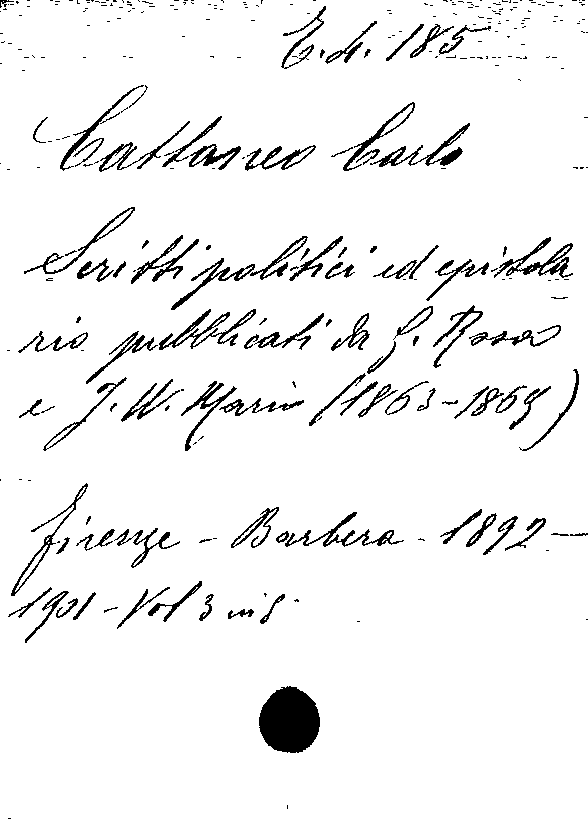 E.4. 185
Cattaneo Carlo
Scritti politici ed epistola
rio pubblicati da G. Rosa
e J. W. Mario (1863-1869)
Firenze - Barbera - 1892 -
1901 - Vol 3 in 8